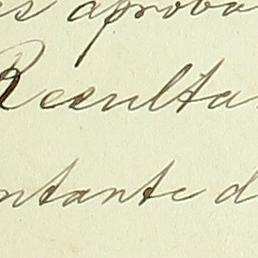 s aprova
Resulta
ntante d